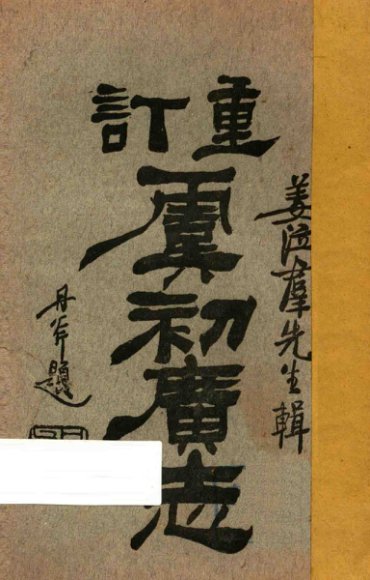 重訂
虞初廣志
姜泣羣先生輯
丹斧題